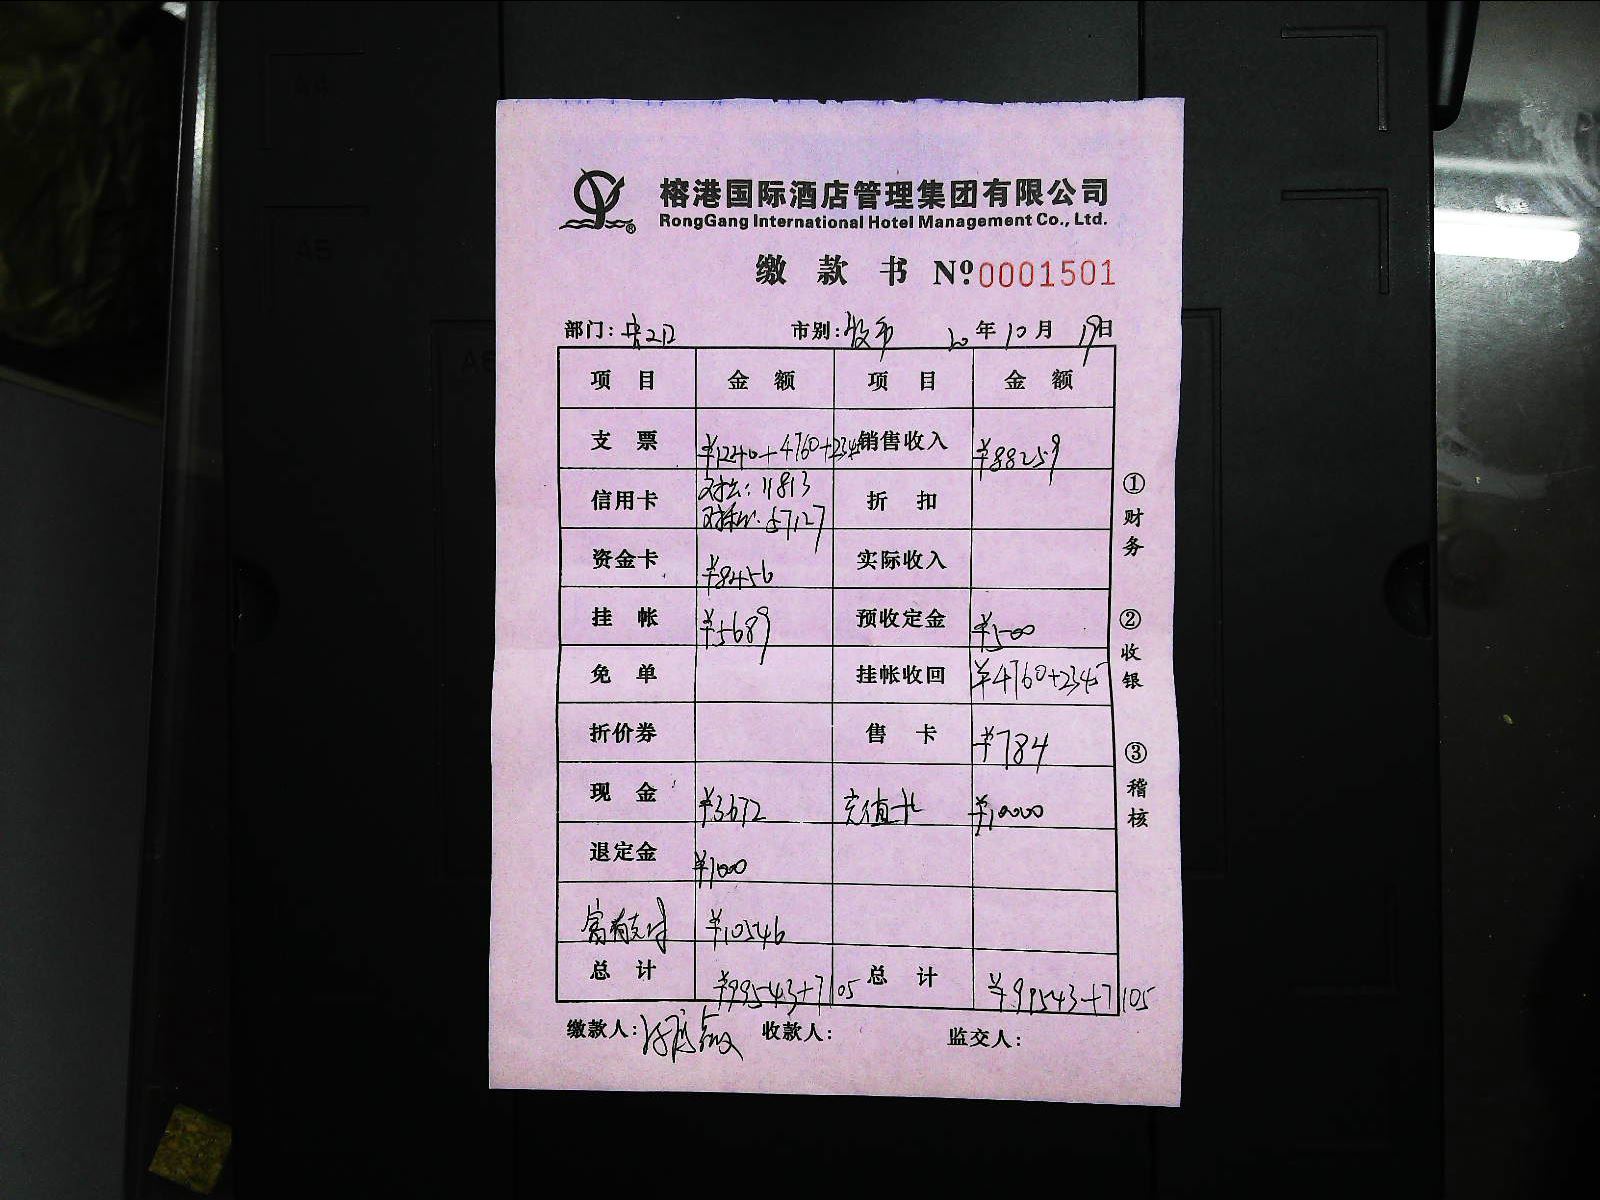 榕港国际酒店管理集团有限公司
RongGang International Hotel Management Co., Ltd.
缴 款 书 Nº 0001501
部门: 市别:夜市 20 年 10 月 19日
项 目 金 额 项 目 金 额
支 票 ¥1240+4760+2345 销售收入 ¥88259
信用卡 对公: 11813 折 扣
对私: 67127
资金卡 ¥8456 实际收入
挂 帐 ¥5689 预收定金 ¥500
免 单 挂帐收回 ¥4760+2345
折价券 售 卡 ¥784
现 金 ¥3672 充值卡 ¥10000
退定金 ¥1000
富有支付 ¥10546
总 计 ¥99543+7105 总 计 ¥99543+7105
缴款人: 收款人: 监交人:
①财务
②收银
③稽核
A4
A5
A6